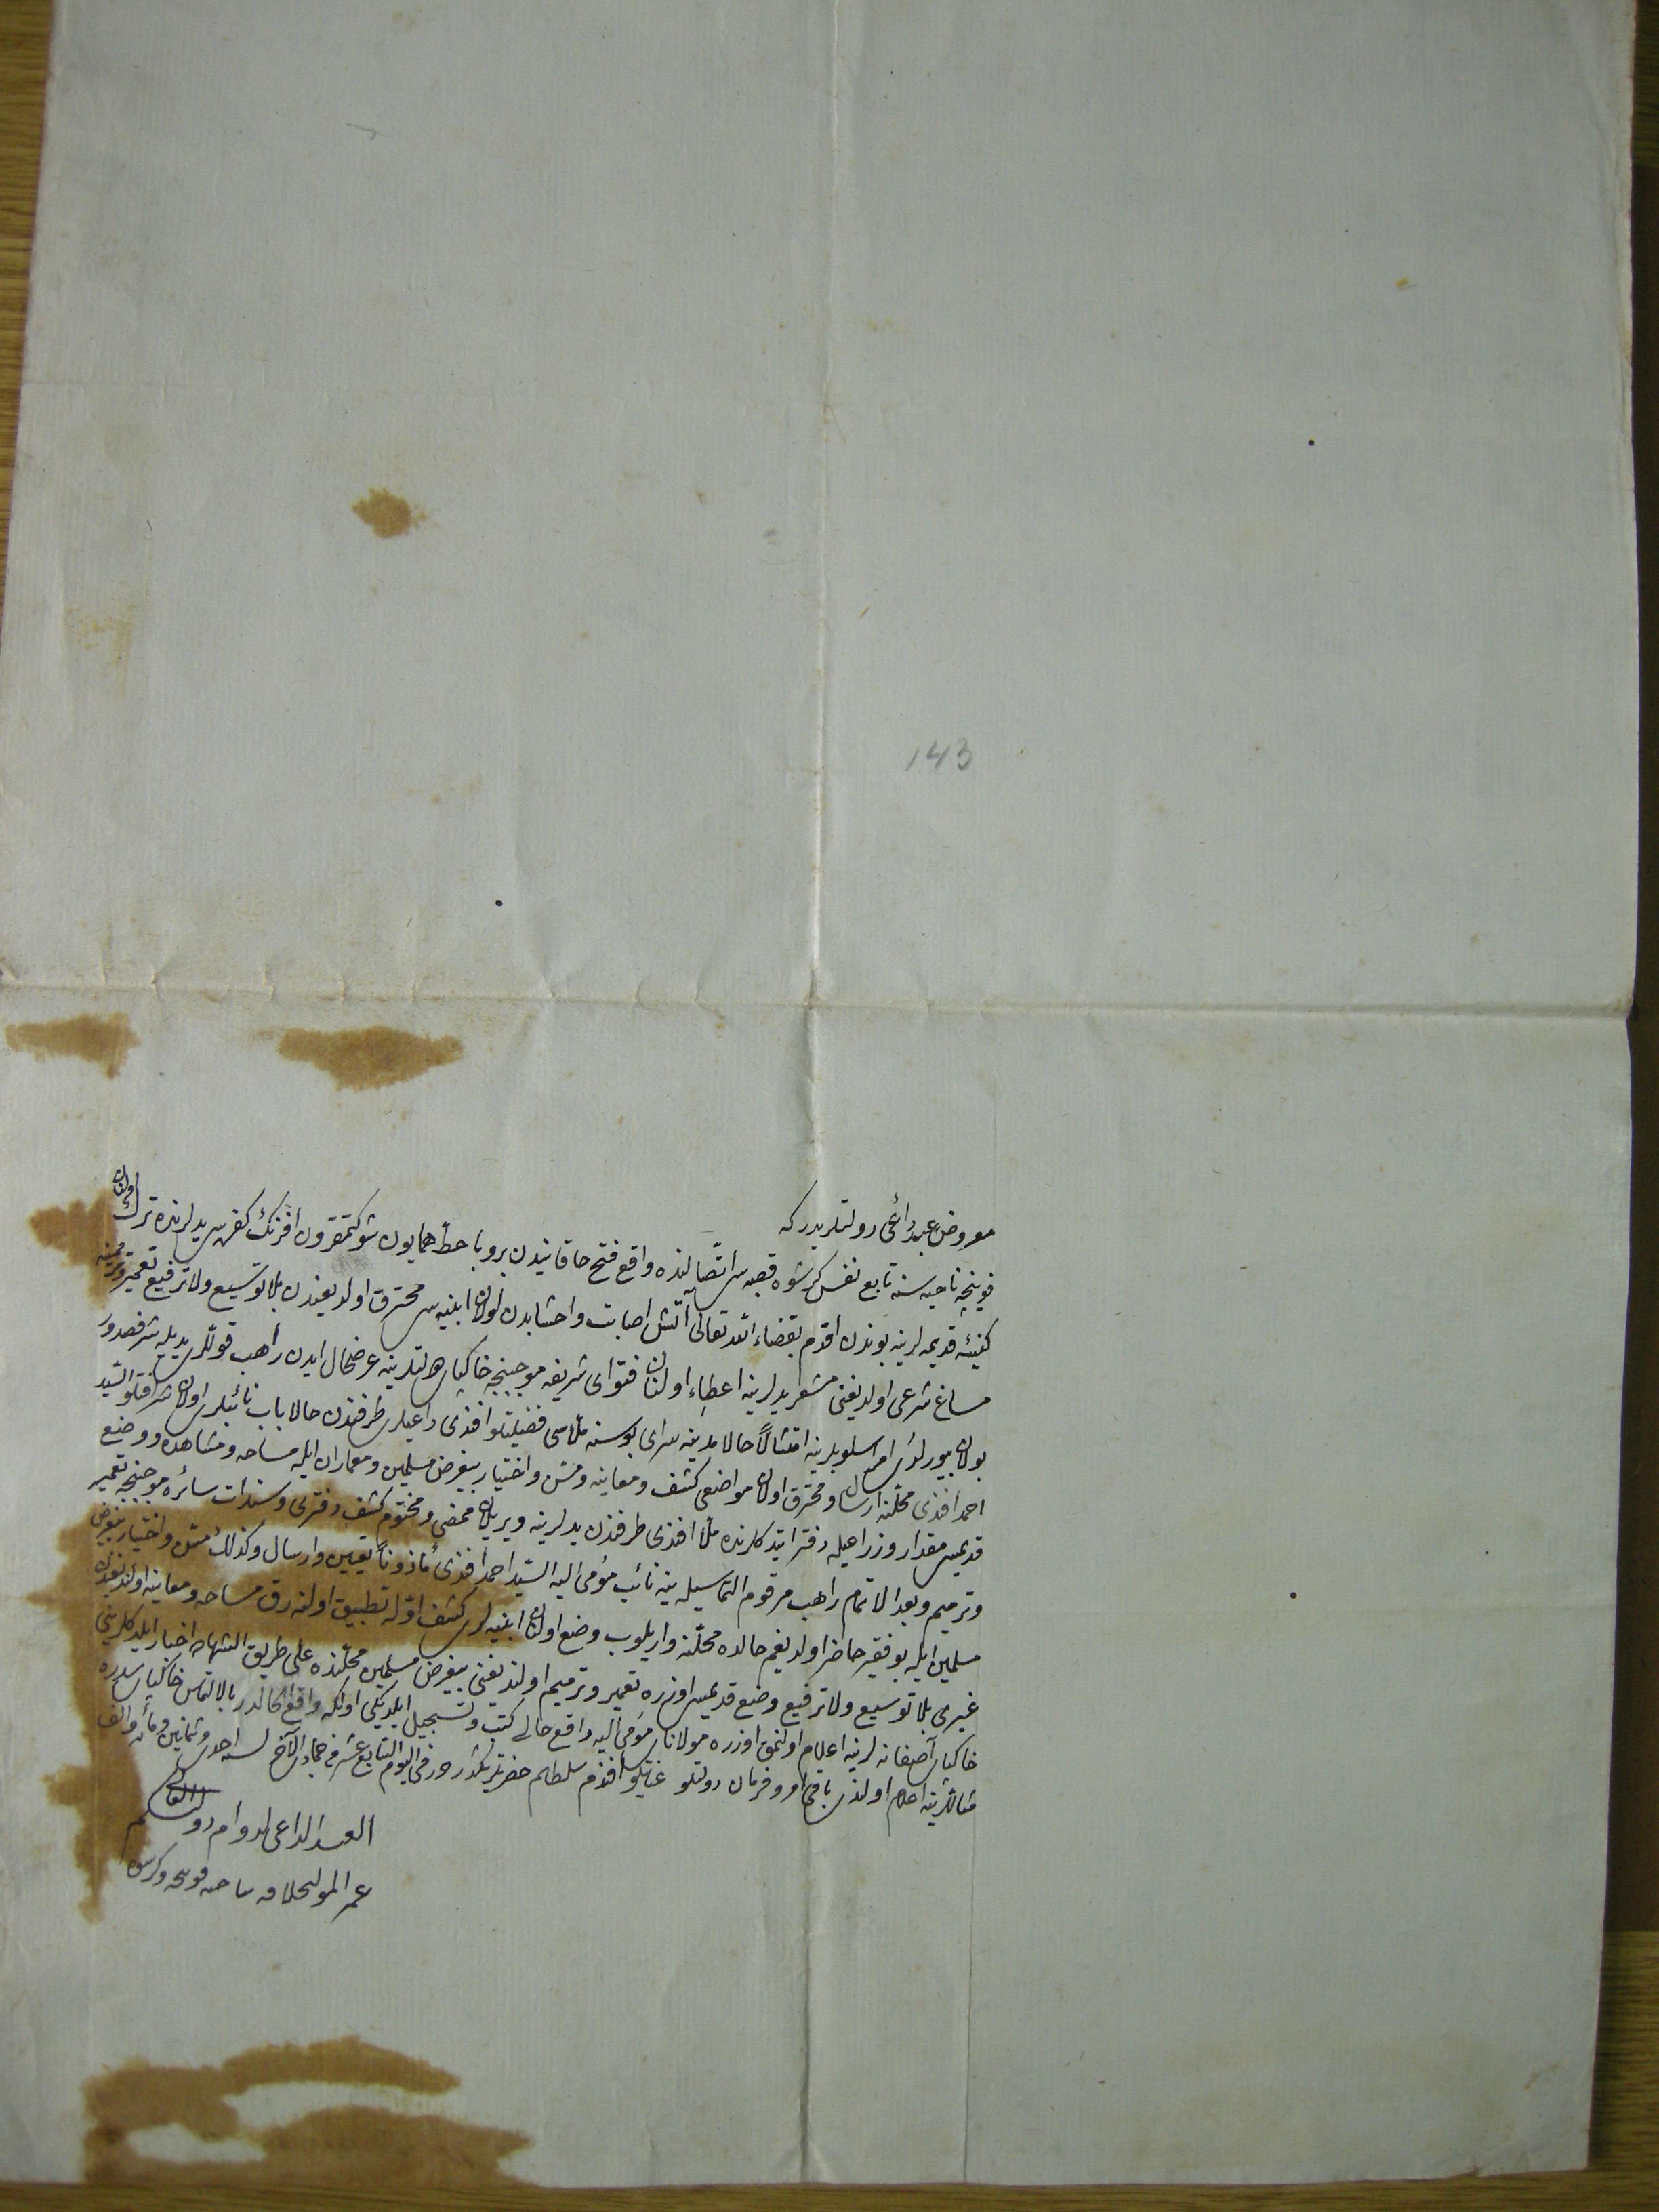 143
معروض عبد داعی دولتلریدر که
فوینیچه ناحیه سنه تابع نفس کرشوه قصبه سی اتصالنده واقع فتح خاقانیدن برو با خط همایون شوکتمقرون افرنک کفره سی یدلرنده ترک اولنان
کنیسۀ قدیمه لرینه بوندن اقدم بقضاء الله تعالی آتش اصابت و اخشابدن اولان ابنیه سی محترق اولدیغندن بلا توسیع ولا ترفیع تعمیر و ترمیمنه
مساغ شرعی اولدیغنی مشعر یدلرینه اعطاء اولنان فتوای شریفه موجبنجه خاکپای دولتلرینه عرضحال ایدن راهب قوللری یدیله شرفصدور
بولان بیورلدی اسلوبلرینه امتثالاً حالا مدینه سرای بوسنه ملاسی فضیلتلو افندی داعیلری طرفندن حالا باب نائبلری اولان شرافتلو السید
احمد افندی محلنه ارسال و محترق اولان مواضعی کشف و معاینه و مسن و اختیار بیغرض مسلمین و معماران ایله مساحه و مشاهده و وضع
قدیمی مقدار و زراعیله دفتر ایتدکلرنده ملا افندی طرفندن یدلرینه ویریلان ممضی و مختوم کشف دفتری و سندات سائره موجبنجه تعمیر
و ترمیم و بعد الاتمام راهب مرقوم التماسیله ینه نائب مومی الیه السید احمد افندی مأذوناً تعیین و ارسال و کذلک مسن و اختیار بیغرض
مسلمین ایله بو فقیر حاضر اولدیغم حالده محلنه واریلوب وضع اولان ابنیه لری کشف اوله تطبیق اولنه رق مساحه و معاینه اولندیغندن
غیری بلا توسیع ولا ترفیع وضع قدیمی اوزره تعمیر و ترمیم اولندیغنی بیغرض مسلمین محلنده علی طریق الشهاده اخبار ایلدکلرینی
خاکپای آصفانه لرینه اعلام اولنمق اوزره مولانای مومی الیه واقع حالی کتب و تسجیل ایلدیکی اولکه واقع الحالدر بالالتماس خاکپای سدره
مثاللرینه اعلام اولندی باقی امر و فرمان دولتلو عنایتلو افندم سلطانم حضرتلرینکدر حرر فی الیوم السابع عشر من جمادی الآخر لسنه احدی وثمانین ومأه والف
العبد الداعی لدوام دولتکم
عمر المولی خلافه بناحیه فوینیچه و کرشوه